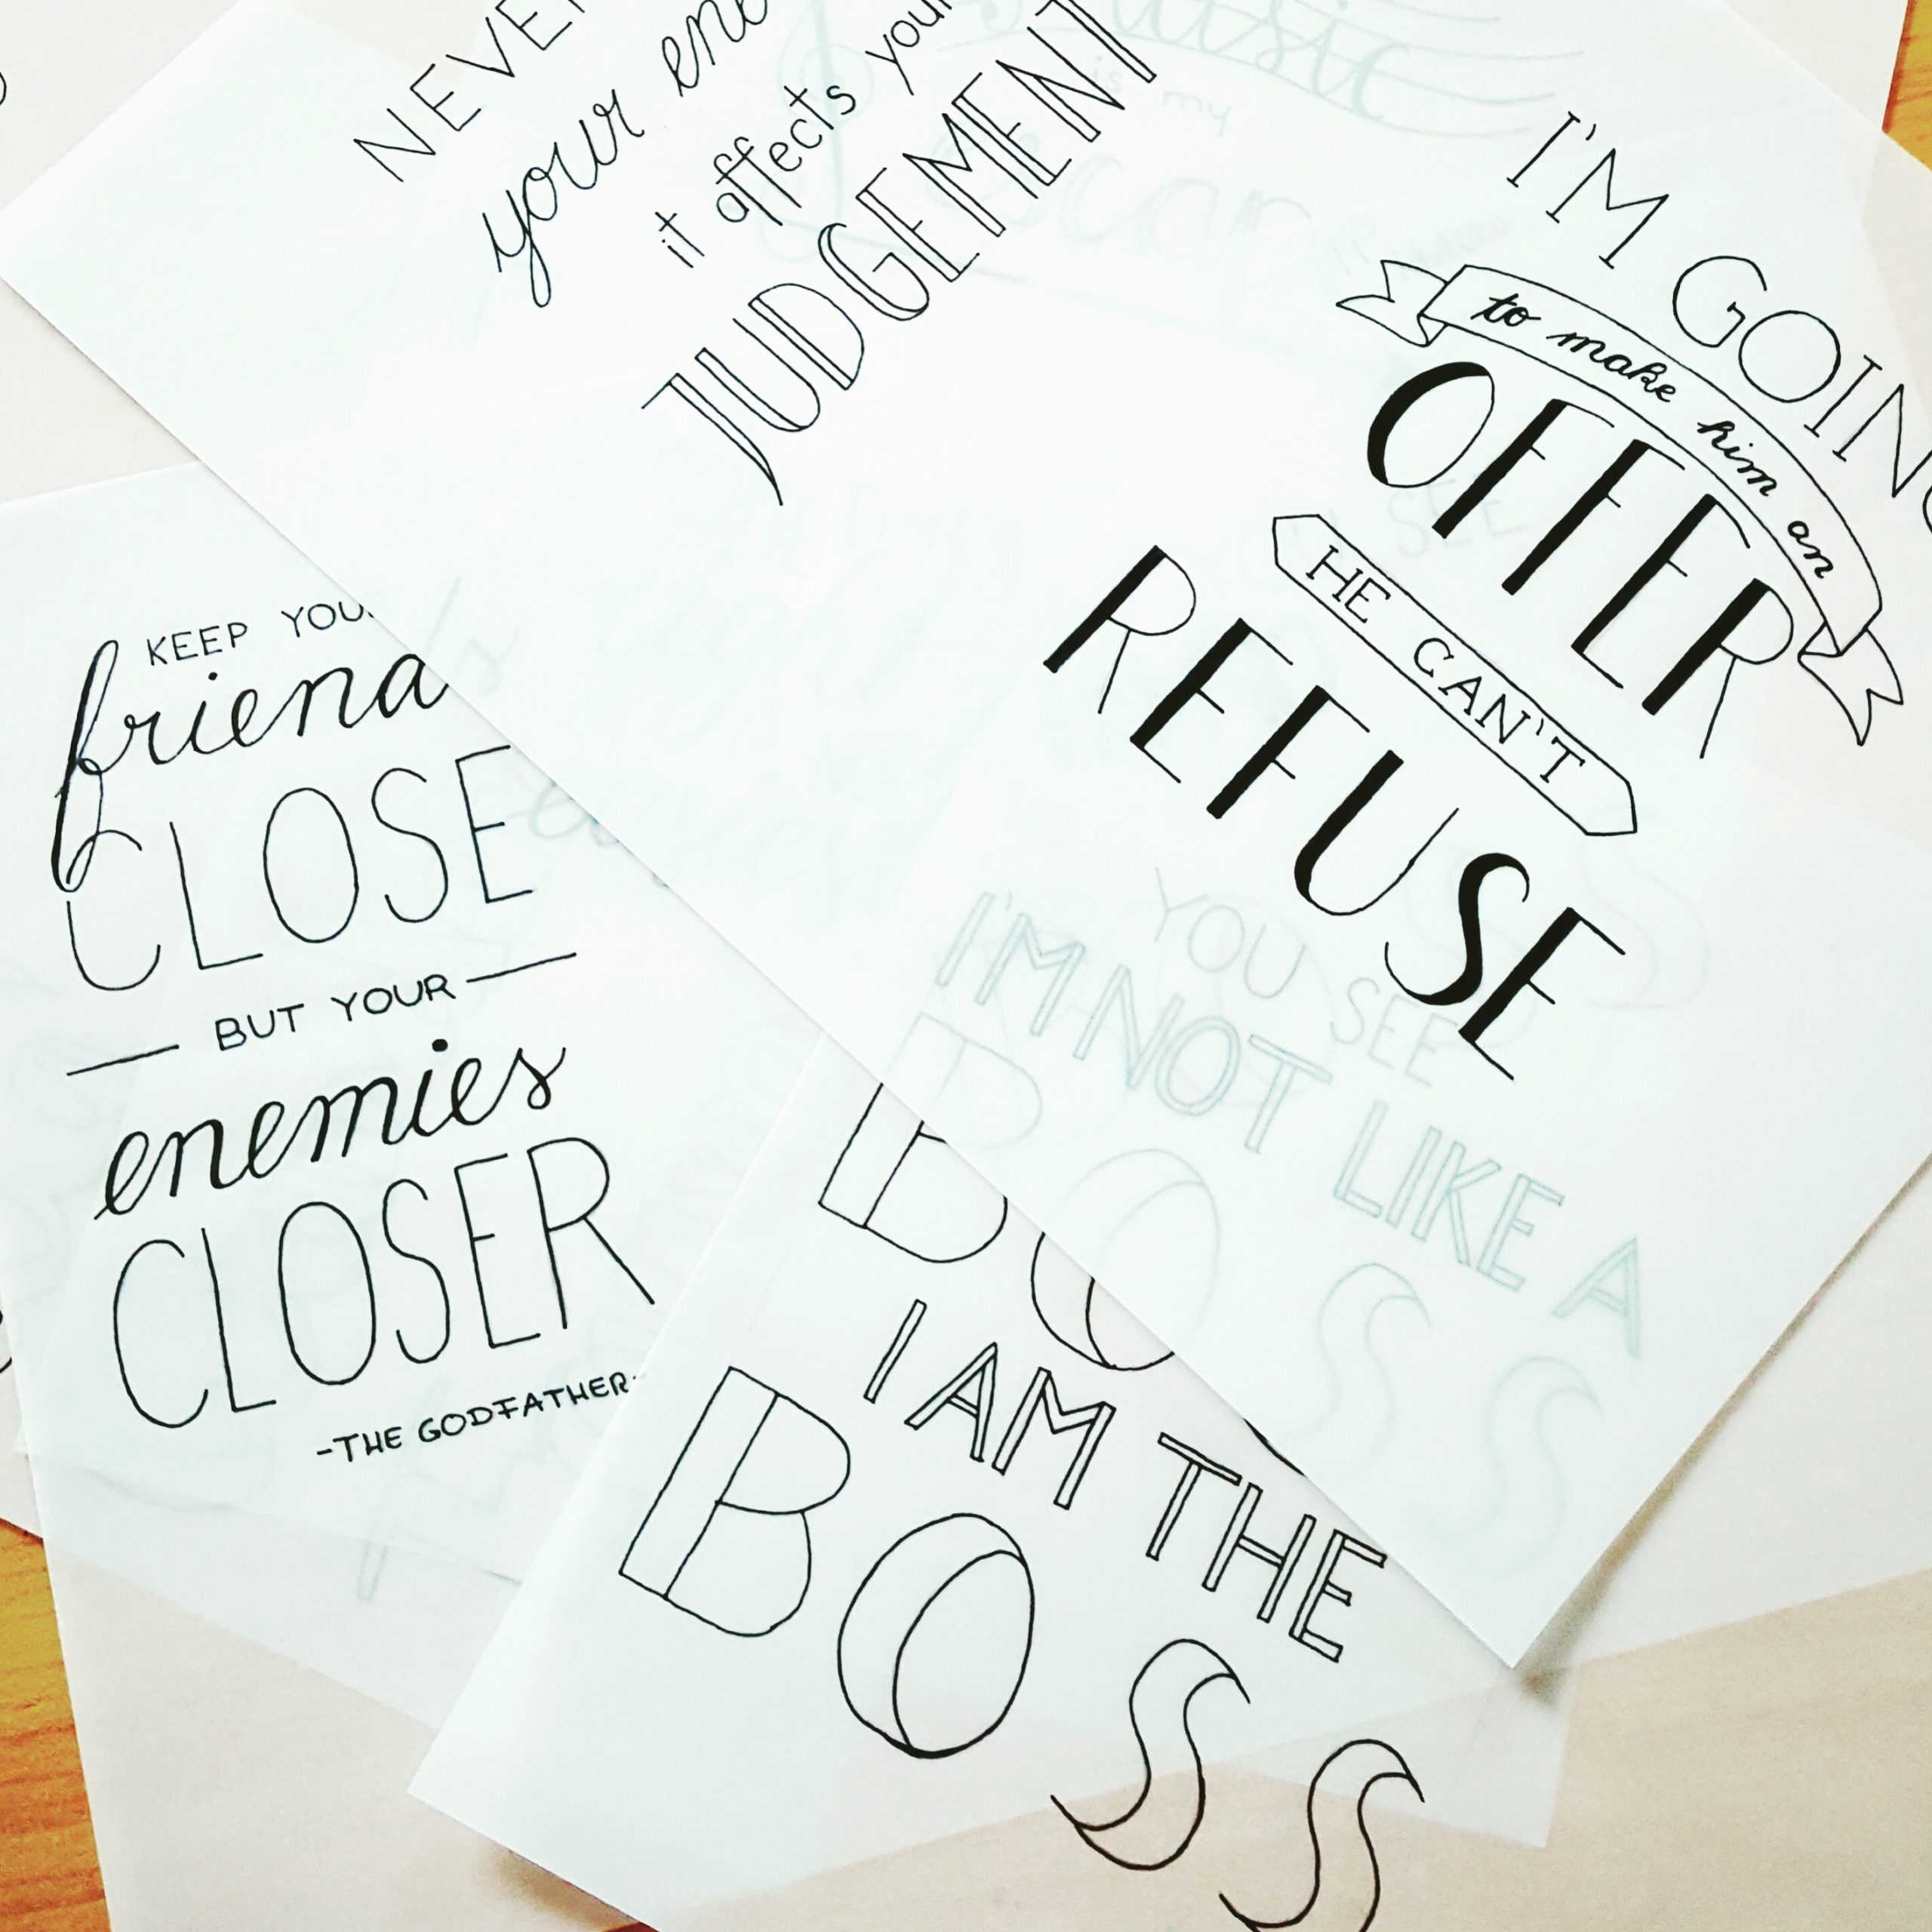 NEVE
your ene
it affects your
JUDGEMENT
Music
is my
I'M GOING
to make him an
OFFER
HE CAN'T
REFUSE
KEEP YOUR
friends
CLOSE
BUT YOUR
enemies
CLOSER
-THE GODFATHER-
YOU SEE
I'M NOT LIKE A
BOSS
I AM THE
BOSS